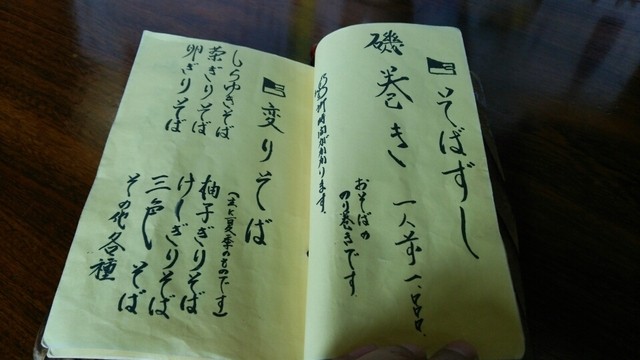 そばずし
磯巻き 一人前一、品品
おそばの
のり巻きです。
時間がかかります。
変りそば
(主に夏季のものです)
しらゆきそば
茶ぎりそば
卵ぎりそば
柚子ぎりそば
けしぎりそば
三色そば
その他各種